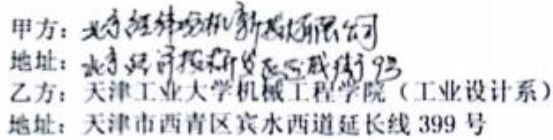 甲方：北京经纬纺机新技术有限公司
地址：北京经济技术开发区永昌
乙方：天津工业大学机械工程学院（工业设计系）
地址：天津市西青区宾水西道延长线 399 号